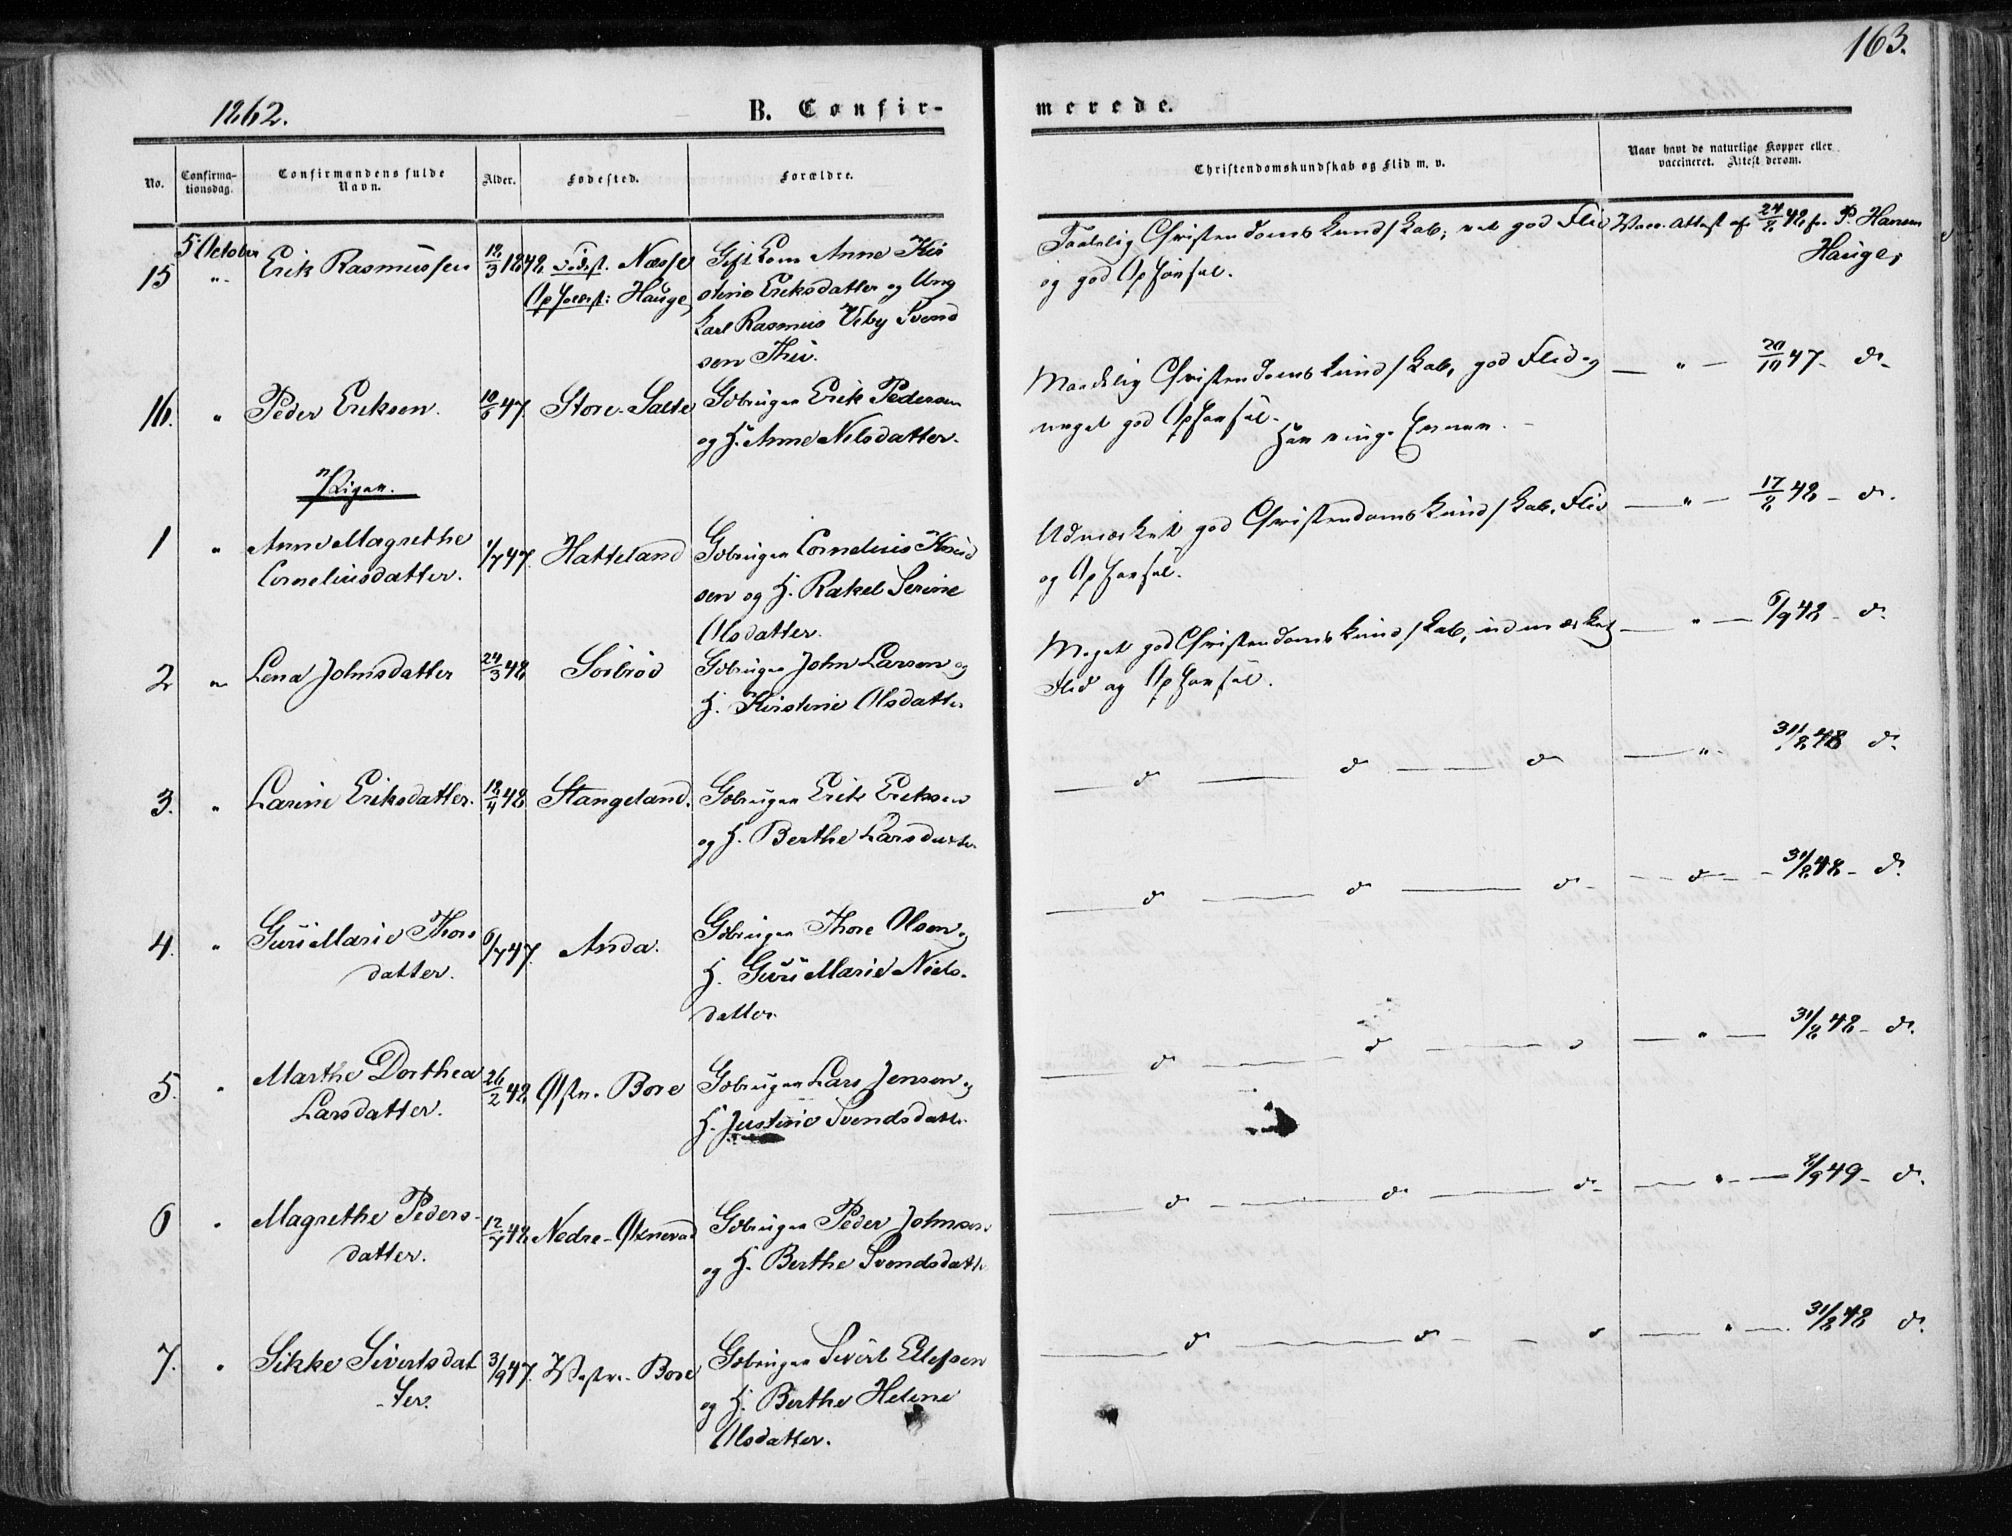 163.
1862.
B. Confir-
merede.
No.
Confirma-
tionsdag.
Confirmandens fulde
Navn.
Alder.
Fødested.
Forældre.
Christendomskundskab og Flid m. v.
Naar havt de naturlige Kopper eller
vaccineret. Attest derom.
15 5 October "- Erik Rasmussen 18/3 1848 Fødest. Næsse
Opholdst: Hauge,
Anne Kir
stine Eriksdatter og Ung
karl Rasmus Veby Svend
sen Thu.
Taalelig Christendomskundskab, ret god Flid
og god Opførsel.
Vacc. Attest af 24/8 48 fr. P. Hansen
Hauge,
16. " Peder Eriksen. 10/6 47. Store-Salte
Gbruger Erik Pedersen
og H. Anne Nilsdatter.
Maadelig Christendomskundskab, god Flid og
meget god Opførsel.
Har ringe Evner.
— " — 20/10 47 - do.
Piger.
1 " Anne Magrethe
Corneliusdatter.
1/7 47. Hatteland
Gbruger Cornelius Knud
sen og H. Rakel Serine
Olsdatter.
Udmærket god Christendomskundskab, Flid
og Opførsel.
— " — 17/8 48 - do.
2 " Lena Johnsdatter 24/3 48 Soibrød
Gbruger John Larsen og
H. Kirstine Olsdatter
Meget god Christendomskundskab, udmærket
Flid og Opførsel.
— " — 6/9 48 - do.
3. " Larine Eriksdatter. 18/4 48. Stangeland.
Gbruger Erik Eriksen
og H. Berthe Larsdatter
— do — do — do — " - 31/8 48 do.
4. " Guri Marie Thors
datter.
6/7 47. Anda.
Gbruger Thore Olsen og
H. Guri Marie Niels-
datter
— do — do — do - — do — 31/8 48 - do.
5. " Marthe Dorthea
Larsdatter.
26/2 48 Østre. Bore
Gbruger Lars Jensen og
H. Justine Svendsdatter
— do — do — do — " — 31/8 48 - do.
6 " Magrethe Peders-
datter.
12/7 48 Nedre-Øxnevad
Gbruger Peder Johnsen
og H. Berthe Svendsdatter
— do — do — do - — " — 8/9 49 - do.
7. " Sikke Sivertsdat
-ter.
3/9 47. Vestre. Bore
Gbruger Sivert Ellefsen
og H. Berthe Helene
Olsdatter.
— do — do — do — " — 31/8 48 do.